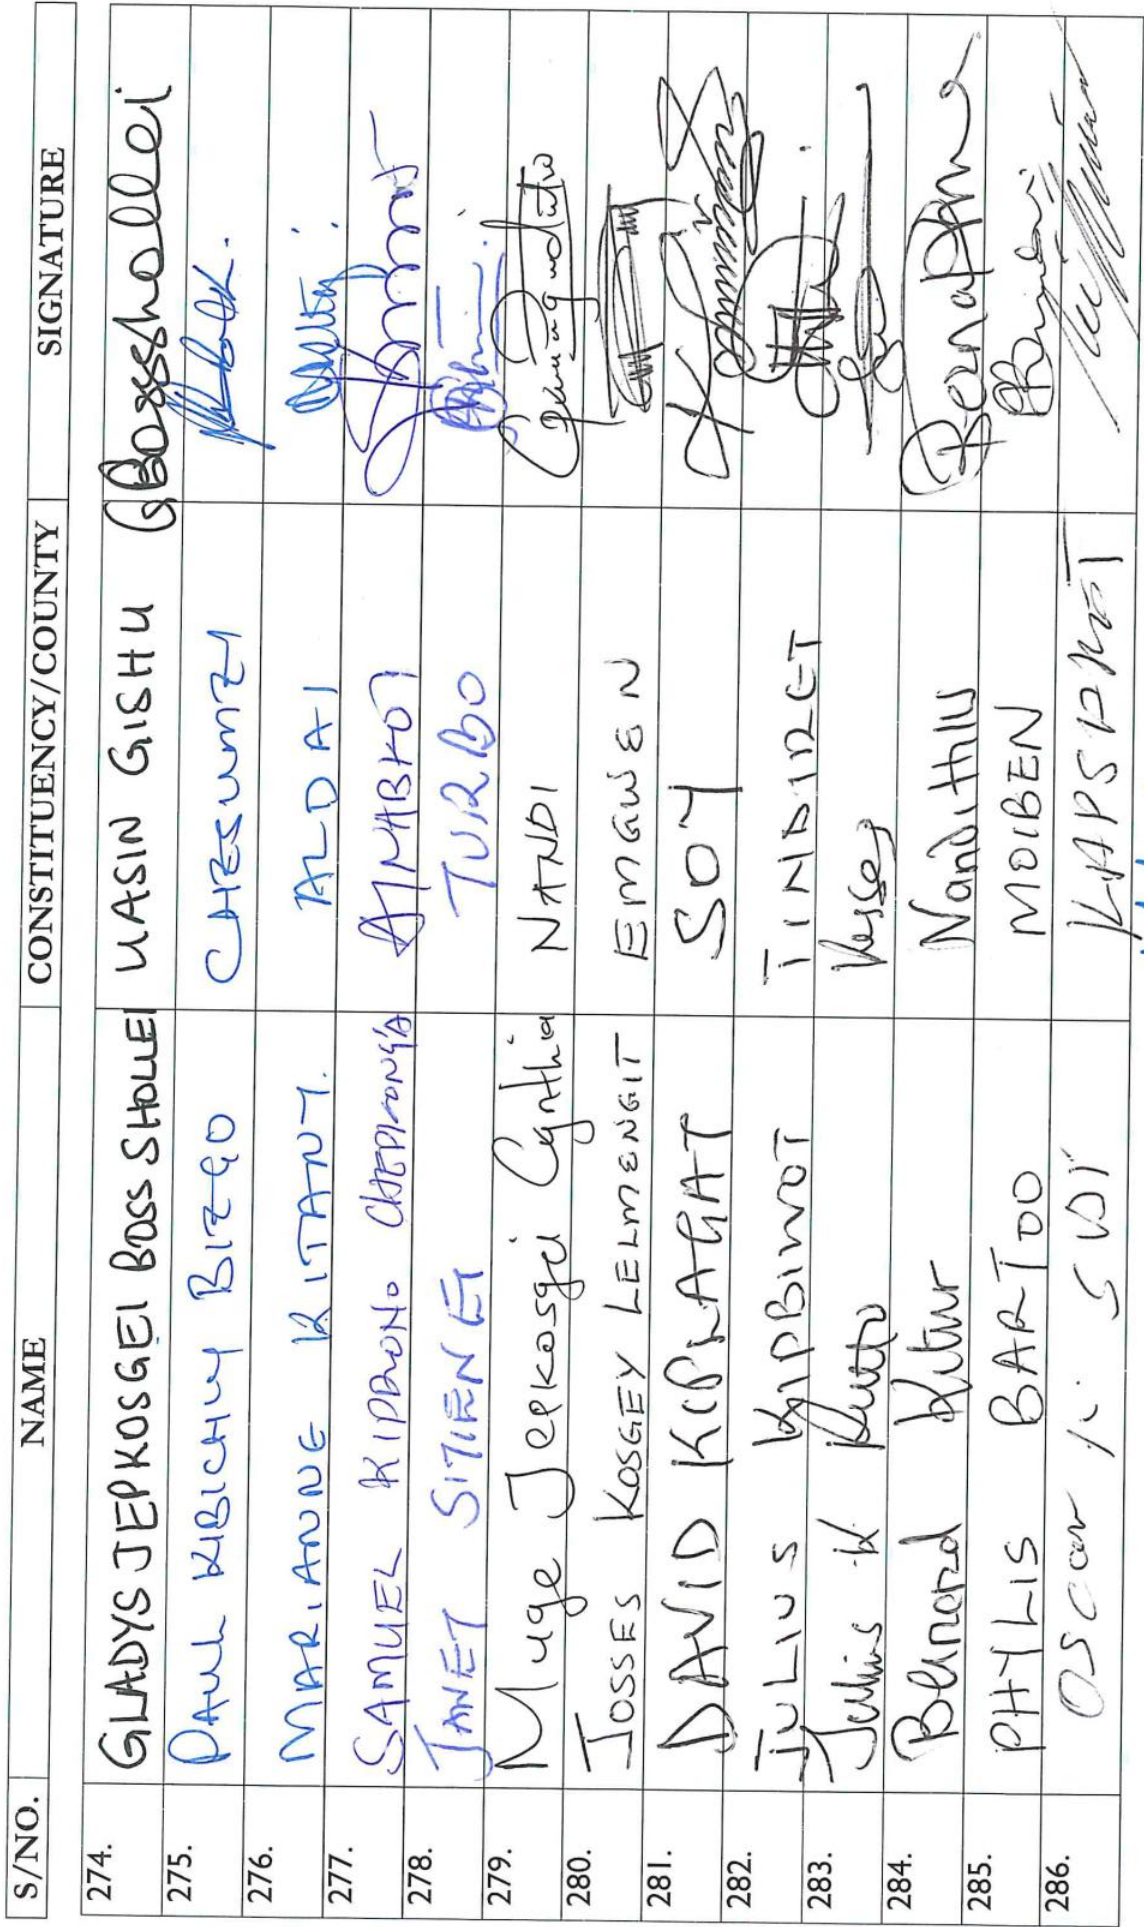 S/NO. NAME CONSTITUENCY/COUNTY SIGNATURE
274. GLADYS JEPKOSGEI BOSS SHOLLEI UASIN GISHU GBossshollei
275. PAUL KIBICHUY BIEGO CHESUMEI
276. MARIANNE KITANY. ALDAI
277. SAMUEL KIPRONO CHEPKONGA AINABKOI
278. JANET SITIENEI TURBO
279. Muge Jepkosgei Cynthia NANDI
280. JOSSES KOSGEY LELMENGIT EMGWEN
281. DAVID KIPLAGAT SOY
282. JULIUS KIPBIWOT TINDIRET
283. Julius K Ruto Kesses
284. Bernard Kitur Nandi Hills
285. PHYLIS BARTOO MOIBEN
286. Oscar K. SUDI KAPSARET